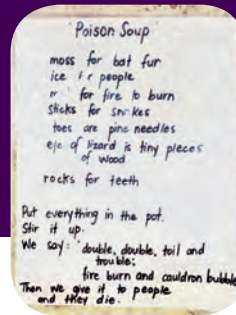 Poison Soup
moss for bat fur
ice people
for fire to burn
sticks for snakes
toes are pine needles
eye of lizard is tiny pieces
of wood
rocks for teeth
Put everything in the pot.
Stir it up.
We say: "double, double, toil and
trouble;
fire burn and cauldron bubble
Then we give it to people
and they die.